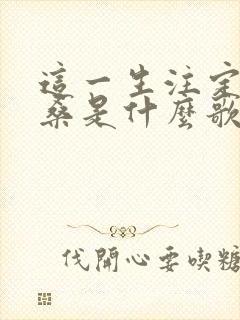 這一生注定
桑是什麼歌
伐開心要喫糖